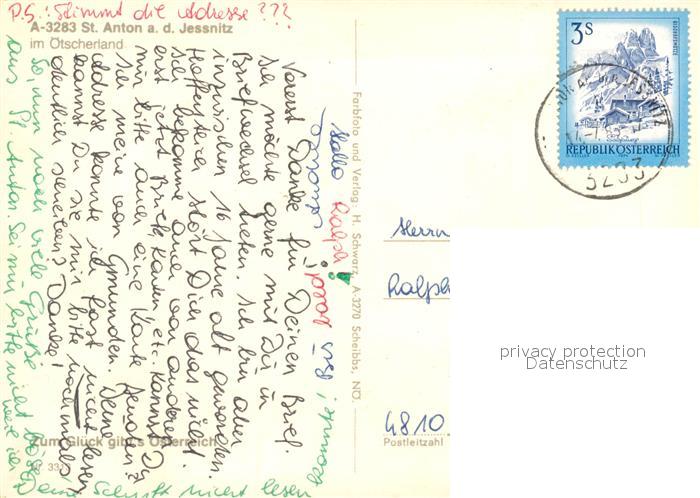 P.S.: Stimmt die Adresse???
A-3283 St. Anton a. d. Jessnitz
im Ötscherland
Hallo Ralph!
Vorerst Danke für Deinen Brief.
Ich möchte gerne mit Dir in
Briefwechsel treten. Ich bin aber
inzwischen 16 Jahre alt geworden.
Hoffentlich stört Dich das nicht.
Ich bekomme auch von anderen
erst jetzt Briefe, Karten etc. Kannst Du
mir bitte auch eine Karte senden?
Ich meine von Gmunden. Deine
Adresse konnte ich fast nicht lesen,
kannst Du sie mir bitte nochmals
deutlich schreiben? Danke!
So, nun noch viele Grüße
aus St. Anton. Sei mir bitte nicht böse,
weil ich
Deine Schrift nicht lesen
Farbfoto und Verlag: H. Schwarz, A-3270 Scheibbs, NÖ.
Zum Glück gibt's Österreich
3 S
BISCHOFSMÜTZE
REPUBLIK ÖSTERREICH
3283
Herrn
Ralph
4810
Postleitzahl
privacy protection
Datenschutz